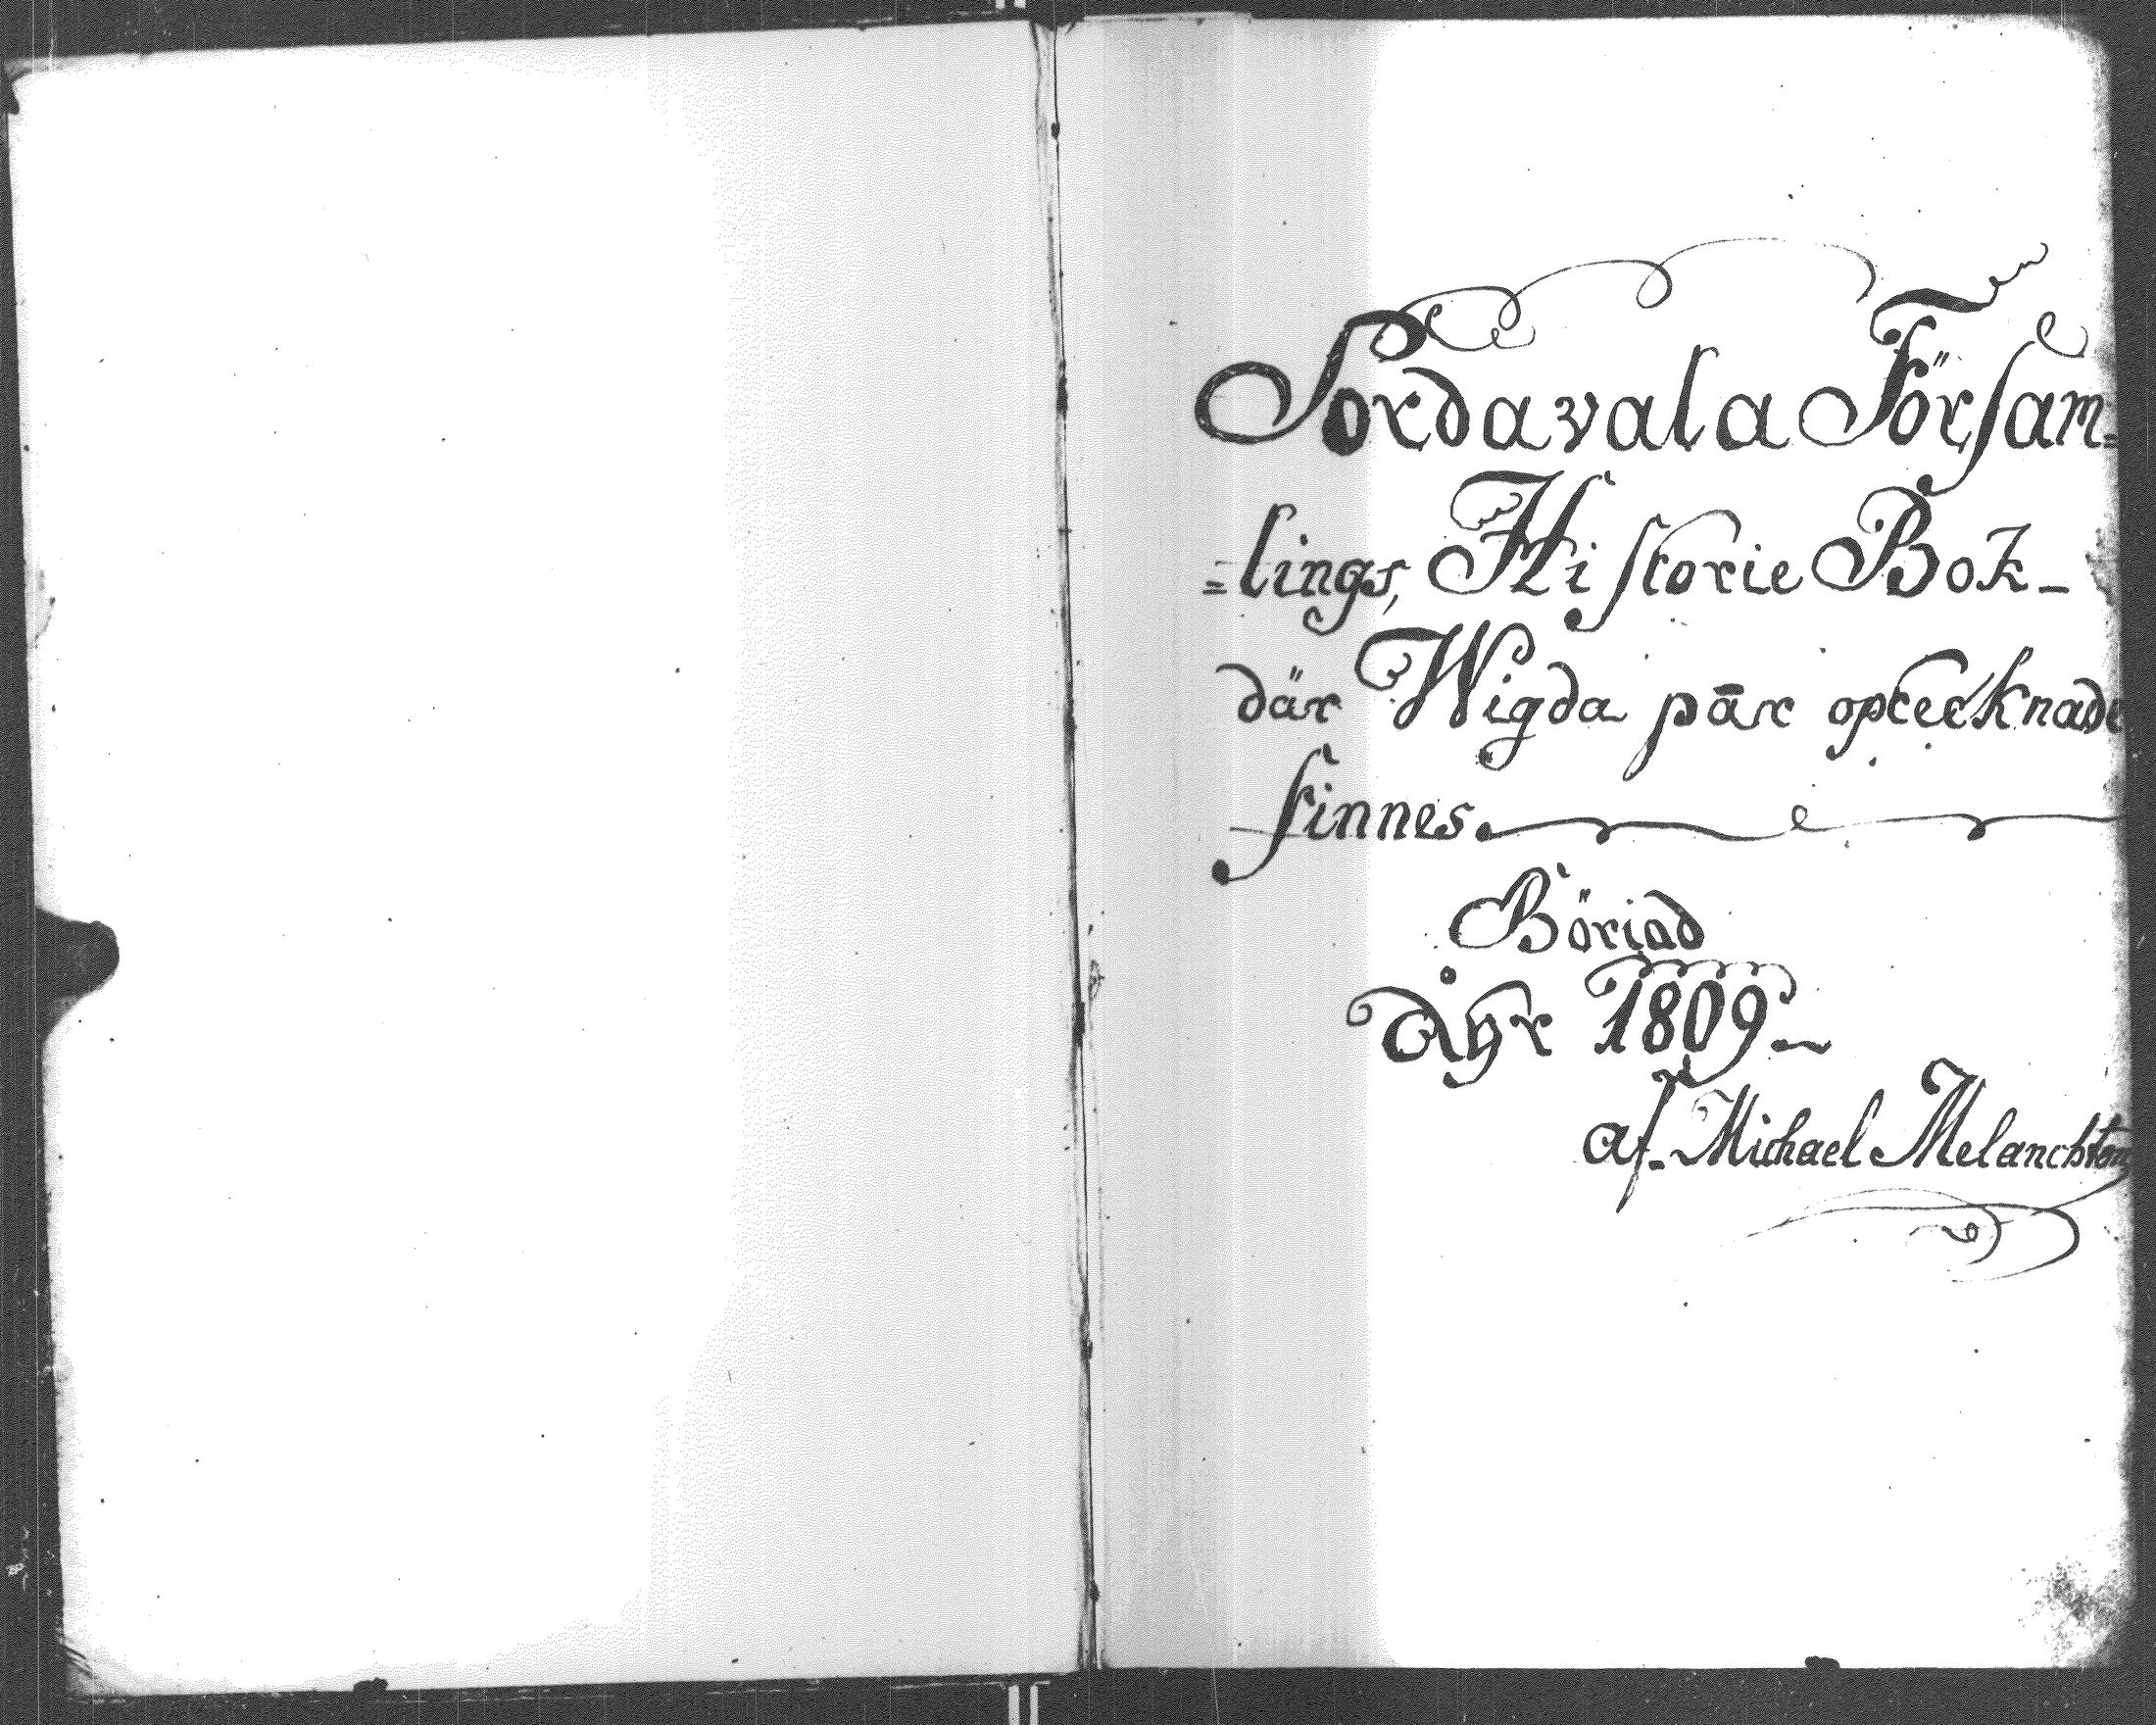 Sordavala Församƺ
=lings, Historie Bok_
där Wigda pār optecknade
finnes.
Böriad
åhr 1809.
af. Michael Melanchton